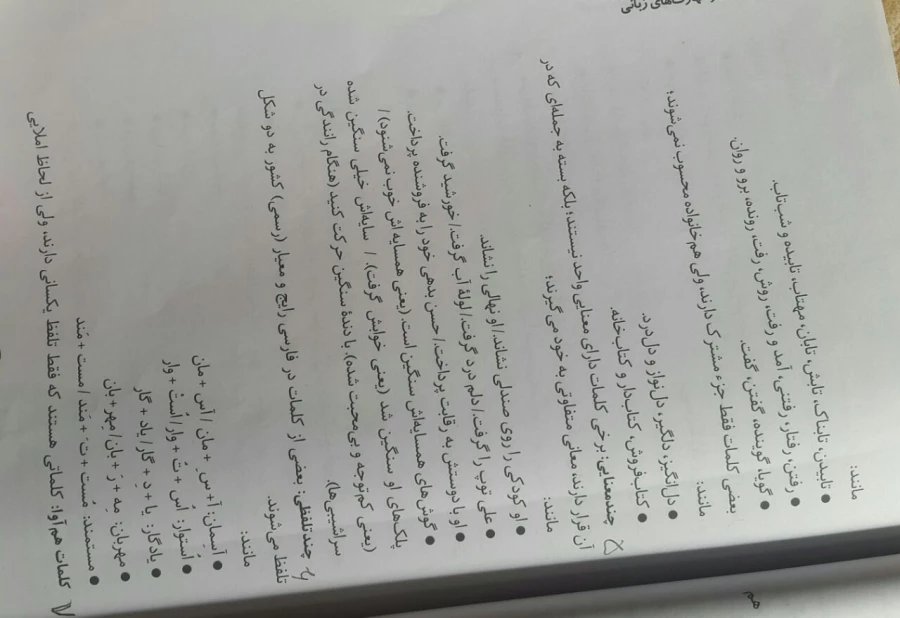 مهارت‌های زبانی
مانند:
● تابیدن، تابناک، تابش، تابان، مهتاب، تابیده و شب‌تاب.
● رفتن، رفتار، رفتنی، آمد و رفت، روش، رفت، رونده، برو و روان.
● گویا، گوینده، گفتن، گفت.
بعضی کلمات فقط جزء مشترک دارند، ولی هم‌خانواده محسوب نمی‌شوند؛
مانند:
● دل‌انگیز، دلگیر، دل‌نواز و دل‌درد.
● کتاب‌فروش، کتاب‌دار و کتاب‌خانه.
چندمعنایی: برخی کلمات دارای معنایی واحد نیستند؛ بلکه بسته به جمله‌ای که در
آن قرار دارند، معانی متفاوتی به خود می‌گیرند؛
مانند:
● او کودکی را روی صندلی نشاند./ او نهالی را نشاند.
● علی توپ را گرفت./ دلم درد گرفت./ لولهٔ آب گرفت./ خورشید گرفت.
● او با دوستش به رقابت پرداخت./ حسن بدهی خود را به فروشنده پرداخت.
● گوش‌های همسایه‌اش سنگین است. (یعنی همسایه‌اش خوب نمی‌شنود) /
پلک‌های او سنگین شد (یعنی خوابش گرفت). / سایه‌اش خیلی سنگین شده
(یعنی کم‌توجه و بی‌محبت شده). با دندهٔ سنگین حرکت کنید (هنگام رانندگی در
سراشیبی‌ها).
چندتلفظی: بعضی از کلمات در فارسی رایج و معیار (رسمی) کشور به دو شکل
تلفظ می‌شوند.
مانند:
● آسِمان: آ + سِ + مان / آس + مان
● اُستوار: اُس + تُ + وار / اُست + وار
● یادگار: یا + دِ + گار / یاد + گار
● مهربان: مِه + رَ + بان / مِهر + بان
● مستمند: مُست + تَ + مَند / مست + مَند
کلمات هم‌آوا: کلماتی هستند که فقط تلفظ یکسانی دارند، ولی از لحاظ املایی
هم